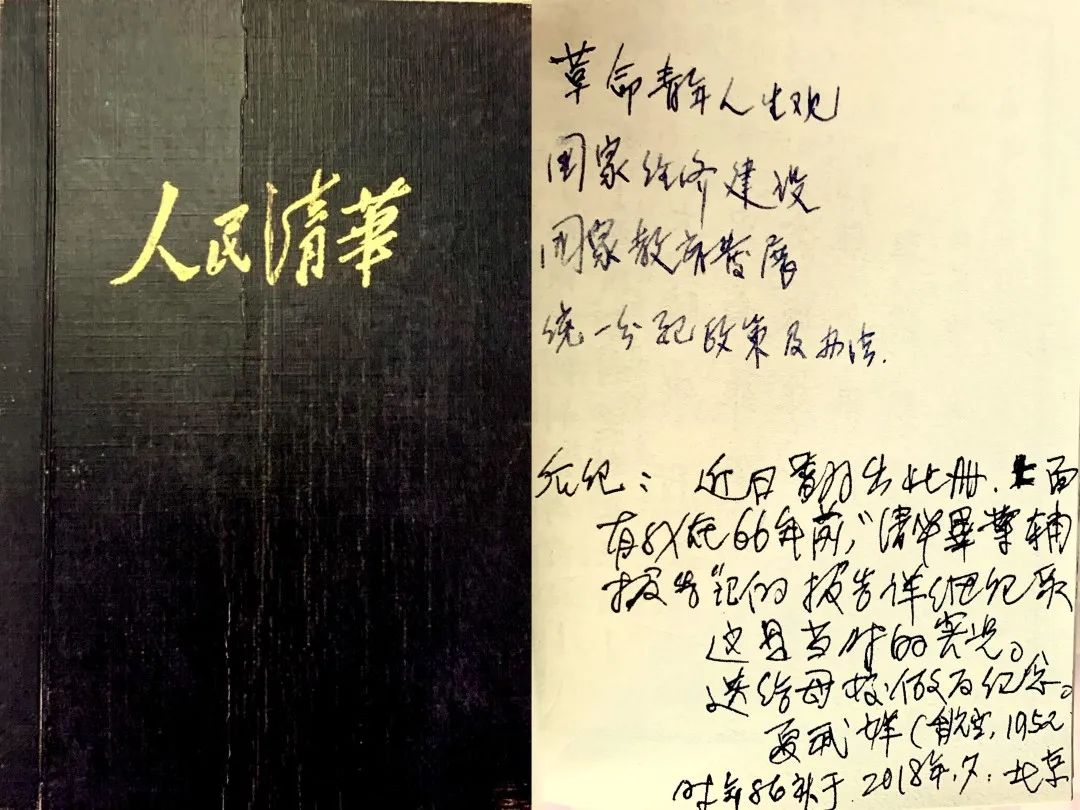 人民清華
革命青年人生观
国家经济建设
国家教育发展
统一分配政策及办法.
后纪: 近日翻出此册.上面
有我在66年前,"清华畢業辅
报告"记的报告详细纪录
这是当时的实况。
送给母校做为纪念。
夏武祥(航空,1952
时年86补于2018年,7.北京